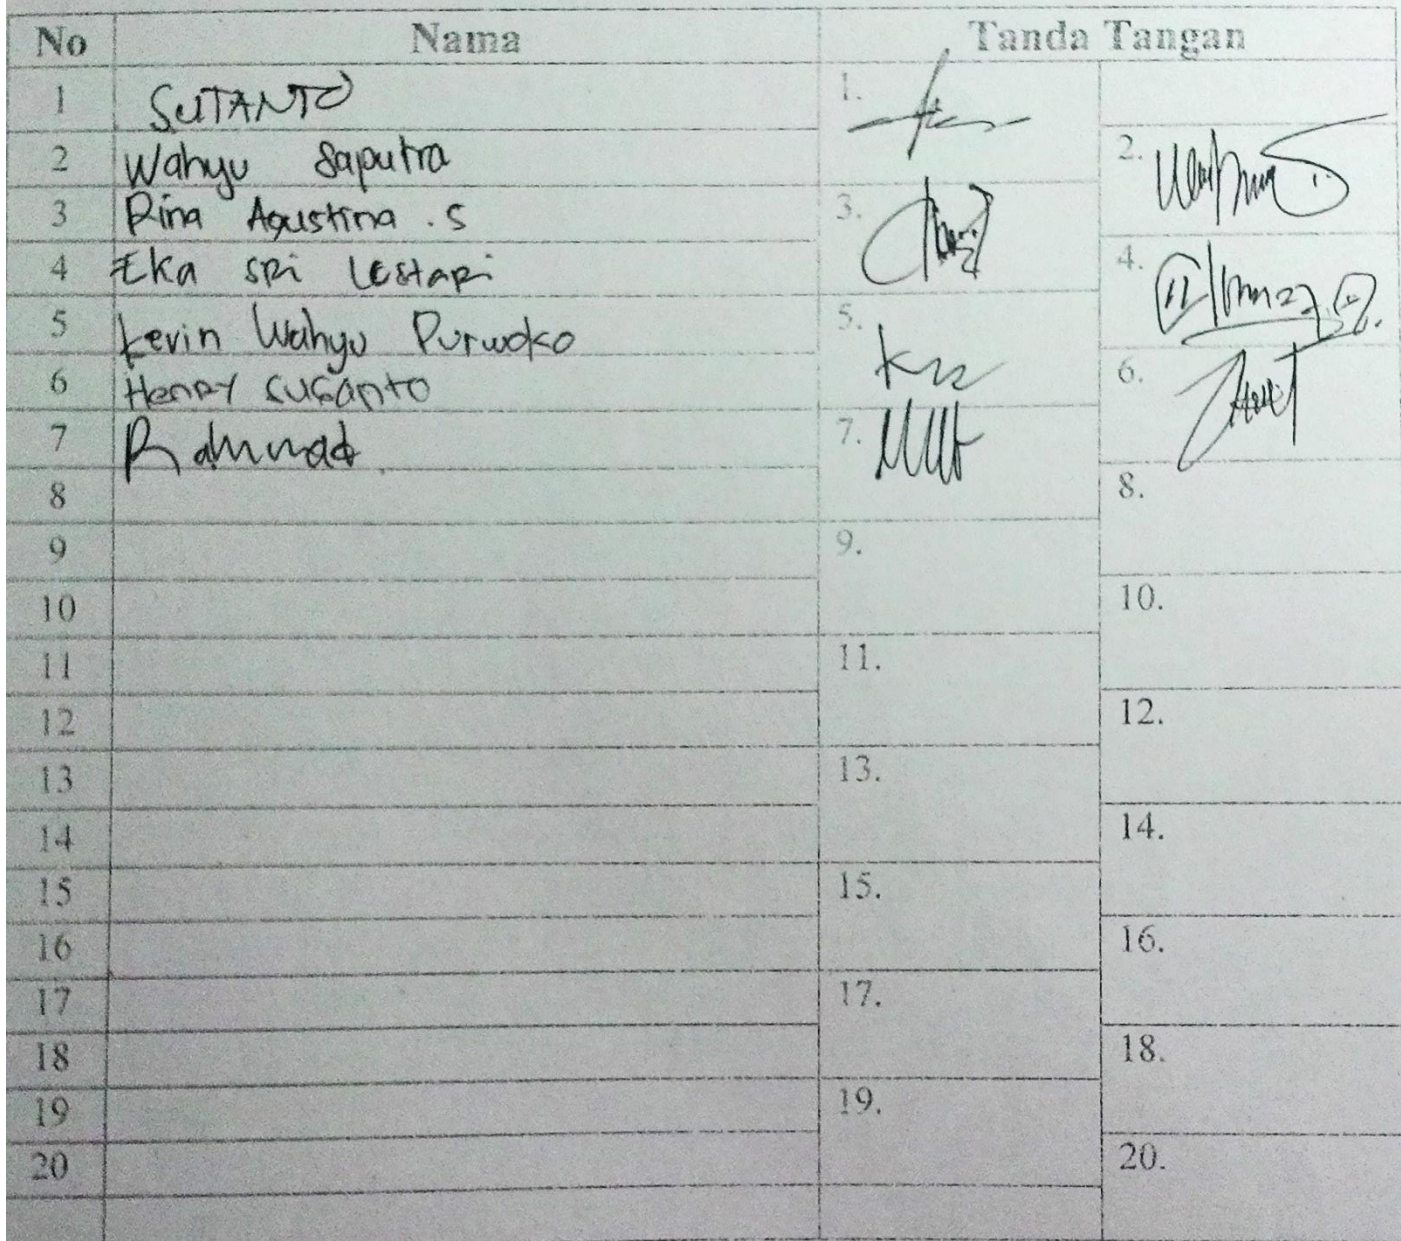 No Nama Tanda Tangan
1 SUTANTO 1.
2 Wahyu Saputra 2.
3 Rina Agustina .S 3.
4 Eka SRi LEStaRi 4.
5 Kevin Wahyu Purwoko 5.
6 HenRY SUSanto 6.
7 Rahmad 7.
8 8.
9 9.
10 10.
11 11.
12 12.
13 13.
14 14.
15 15.
16 16.
17 17.
18 18.
19 19.
20 20.